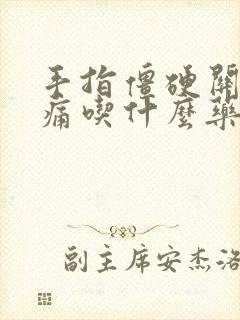 手指僵硬關
痛喫什麼藥
副主席安杰洛